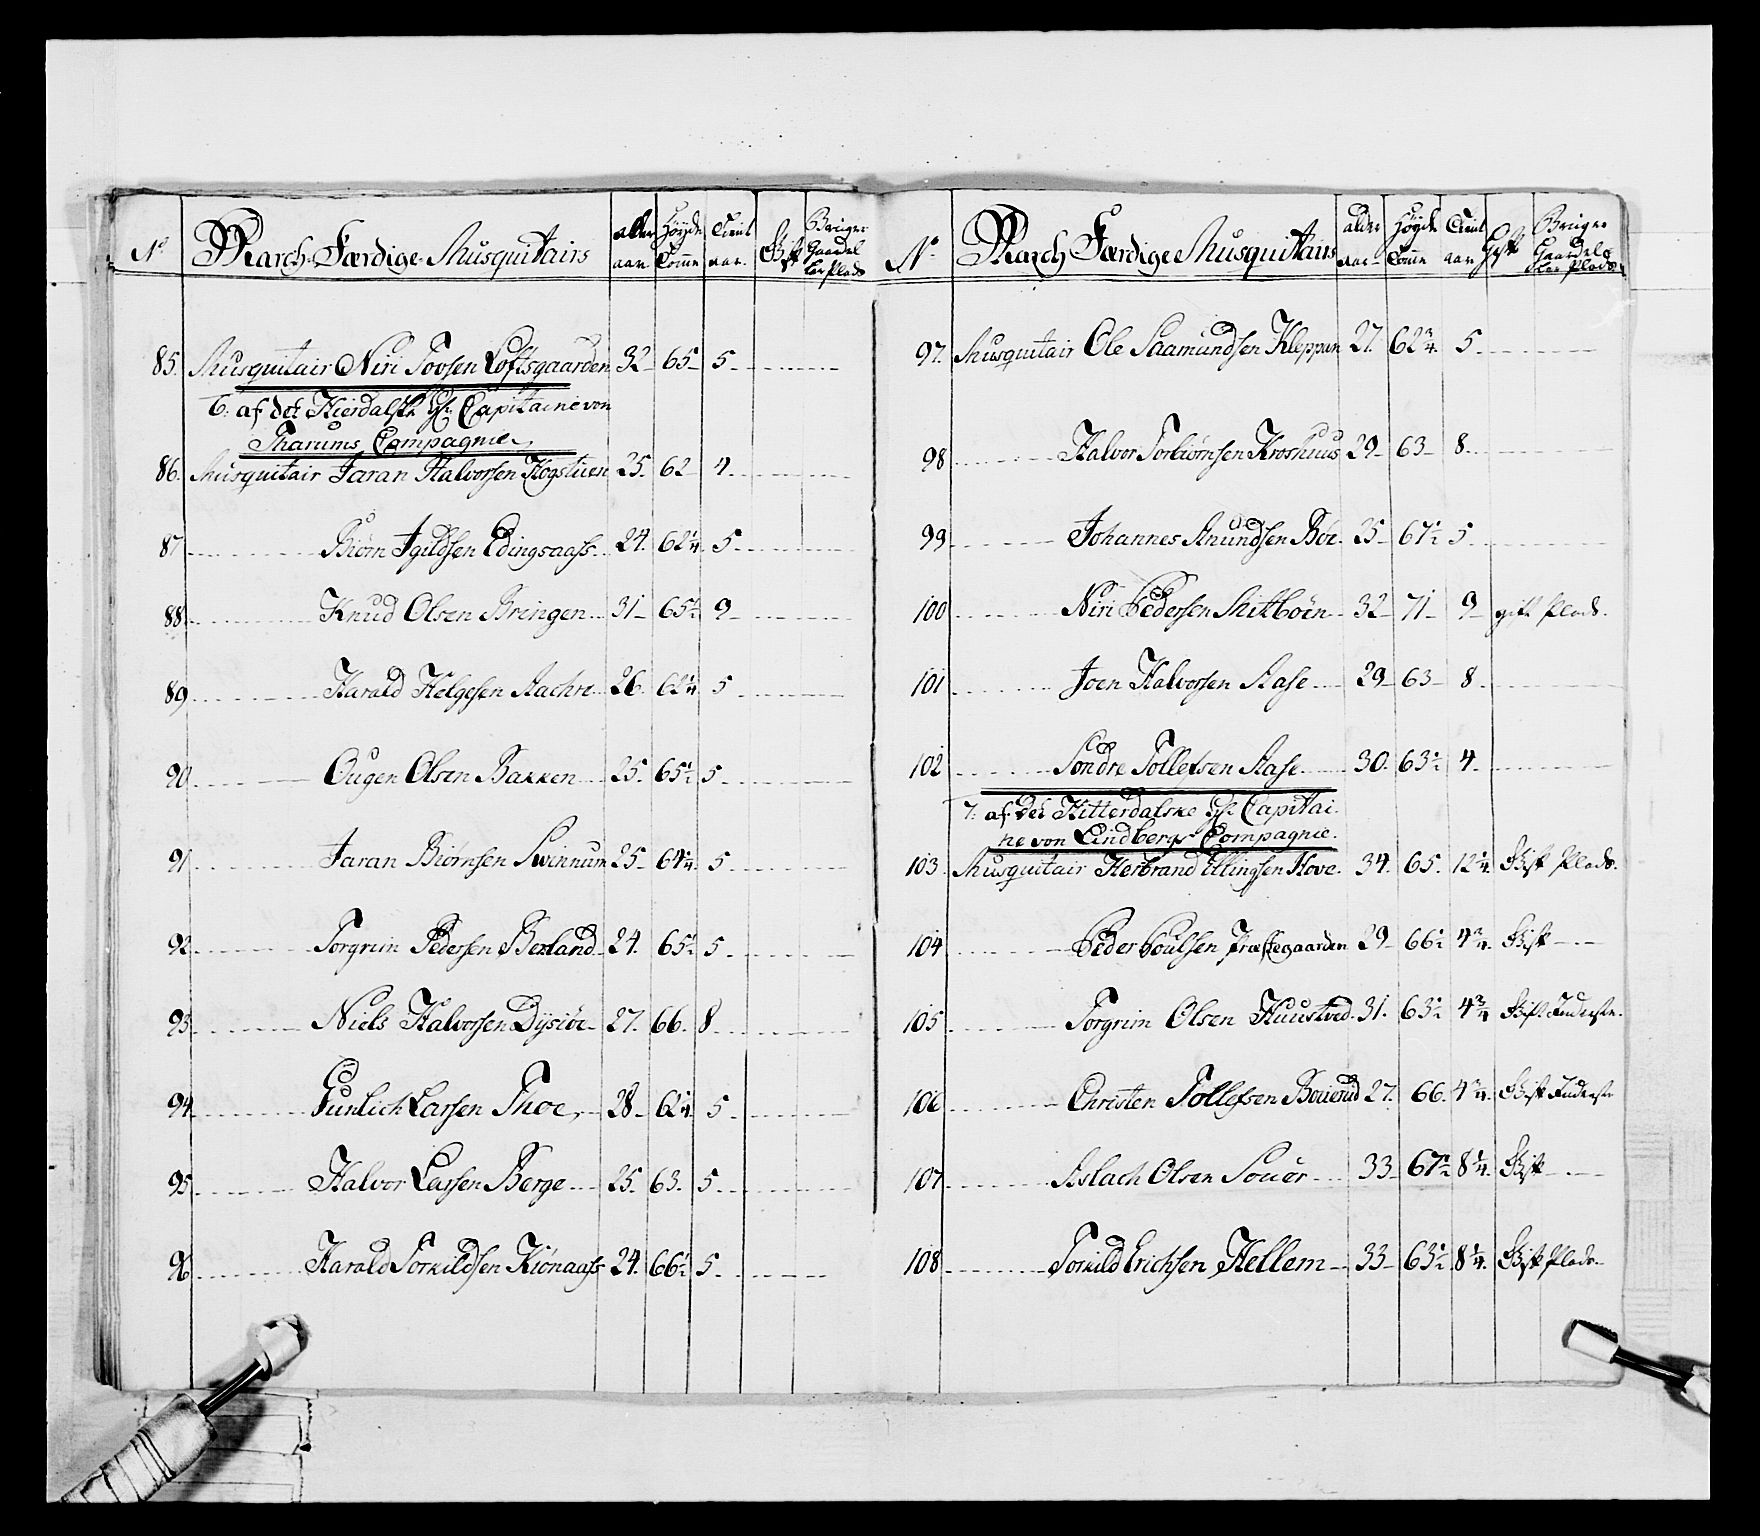 No March-Færdige Musquitairs alder aar Høyde Tomme Tient aar. Gift Bruger Gaard el ler Plads
85. Musquitair Niri Tovsen Loftsgaarden 32 65 5
6: af det Hierdalske Hr Capitaine von
Tharums Compagnie
86. Musquitair Jaran Halvorsen Hogstuen 25. 62 4
87 Biørn Igildsen Edingsaass 24. 62 1/4 5
88. Knud Olsen Bringen 31 65 1/2 9
89 Harald Helgesen Aachre 26 62 1/4 5
90 Ougen Olsen Bakken 25. 65 1/2 5
91 Jaran Biørnsen Swinnum 25 64 1/4 5
92 Torgrim Pedersen Berland 24. 65 1/2 5
93 Niels Halvorsen Dysiøe 27. 66. 8
94 Gunlich Larsen Thoe 28 62 1/4 5
95 Halvor Larsen Berge 25. 63. 5
96 Harald Torkildsen Kiønaass 24. 66 1/2 5
No March Færdige Musquitairs alder aar Høyde Tomme Tient aar Gift Bruger Gaard el ler Plads
97. Musquitair Ole Saamundsen Kleppen 27. 62 3/4 5
98 Halvor Torbiørnsen Kroshuus 29 63 8
99 Johannes Anundsen Bøe 25 67 1/2 5
100 Niri Pedersen Mitbøen 32 71 9 gift Plads.
101 Joen Halvorsen Aase 29 63 8
102 Søndre Tollefsen Aase 30. 63 1/2 4.
7: af det Hitterdalske Hr Capitai
ne von Lindbergs Compagnie.
103 Musquitair Herbrand Ellingsen Hove. 34. 65. 12 1/4 Gift Plads.
104 Peder Poulsen Præstegaarden 29 66 1/2 4 3/4 Gift
105 Torgrim Olsen Huustved 31. 63 1/2 4 3/4 Gift Inderste.
106 Christen Tollefsen Bouerud 27. 66. 4 3/4 Gift Inderste
107 Aslach Olsen Souer 33 67 1/2 8 1/4 Gift
108 Torkild Erichsen Hellem 33 63 1/2 8 1/4 Gift Plads